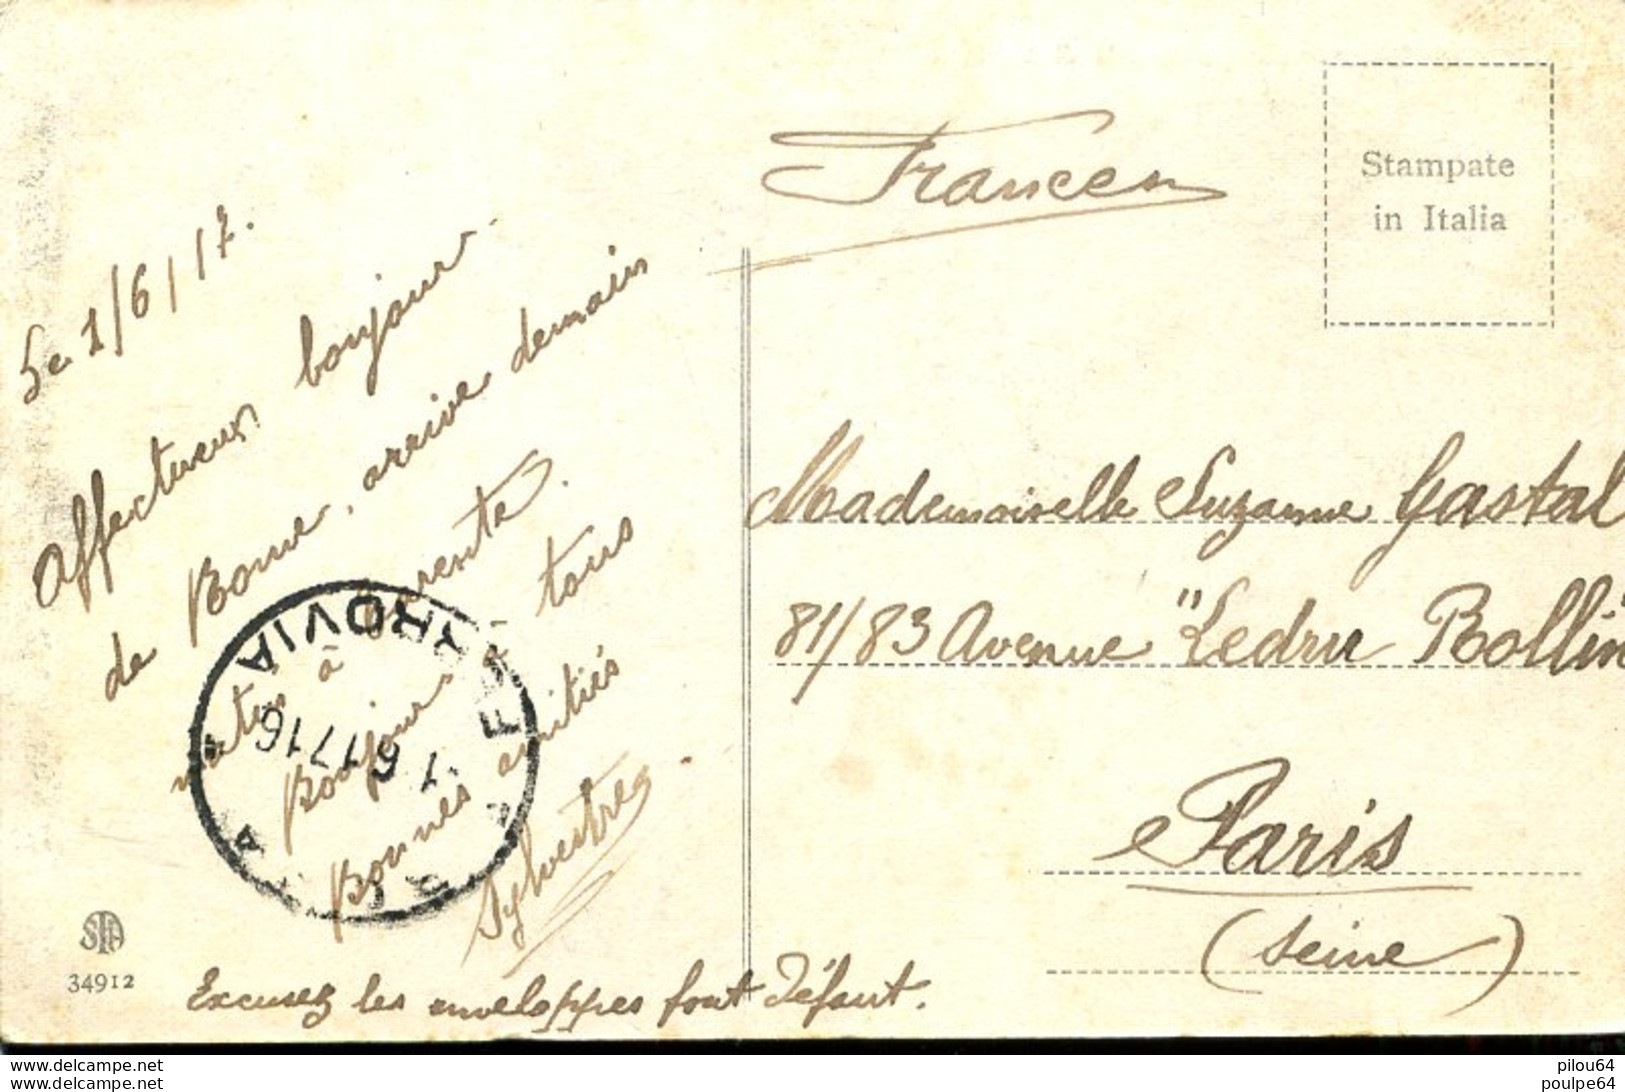 Le 1/6/17.
Affectueux bonjour
de Rome, arrive demain
matin à Tarente.
Bonjour à tous
Bonnes amitiés
Sylvestre
Excusez les enveloppes font défaut.
France
Stampate
in Italia
Mademoiselle Suzanne Gastal
81/83 Avenue "Ledru Rollin
Paris
(Seine)
FERROVIA
1 6 17 16
STA
34912
delcampe.net
pilou64
delcampe.net
poulpe64